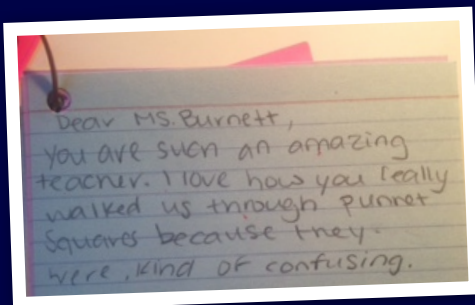 Dear Ms. Burnett,
you are such an amazing
teacher. I love how you really
walked us through punnet
squares because they
were kind of confusing.